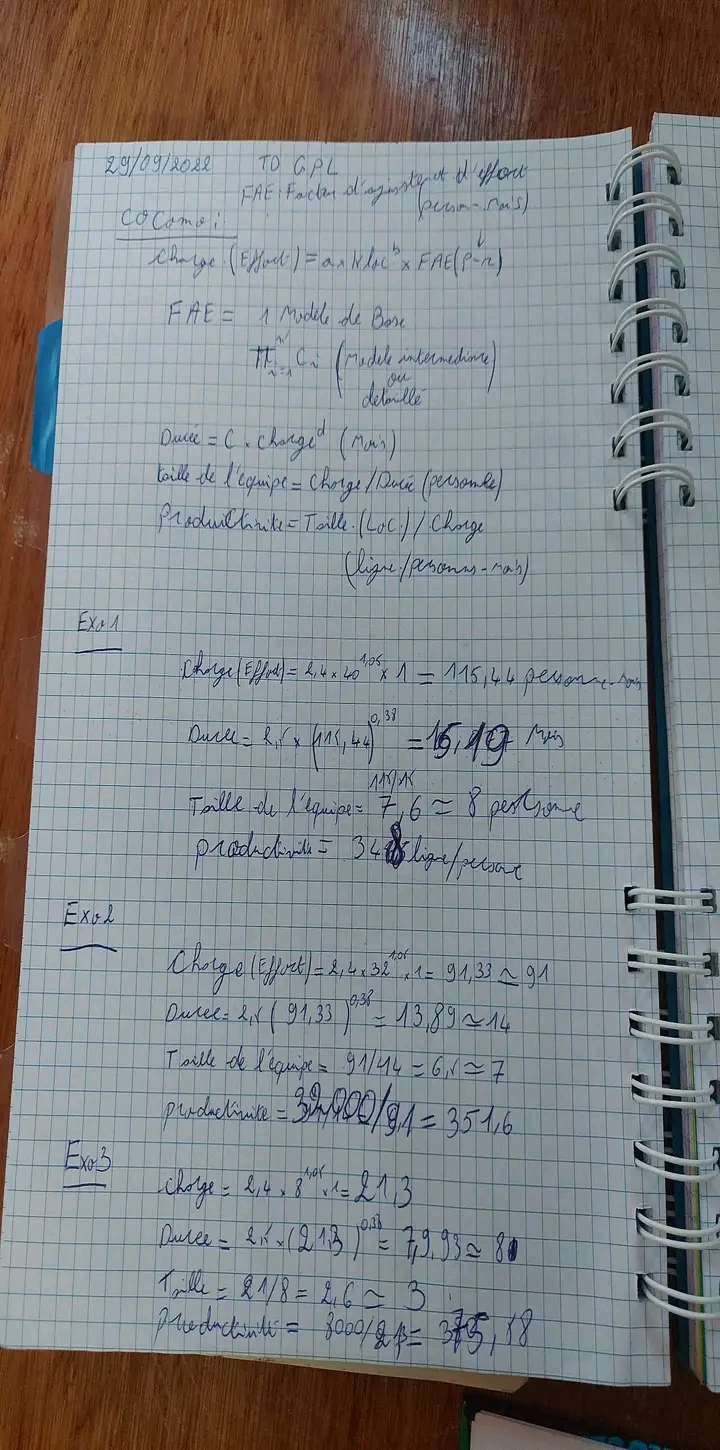 29/09/2022 TD GPL
FAE: Facteur d'ajustement d'effort
(person-mois)
COCOMO:
Charge (Effort) = a x Kloc^b x FAE (p-m)
FAE = 1 Modele de Base
π^n_{i=1} Ci (Modele intermediaire
ou
detaillé)
Durée = C . charge^d (Mois)
taille de l'équipe = Charge / Durée (personne)
Productivite = Taille (LOC) / Charge
(ligne / personns-mois)
Exo1
Charge (Effort) = 2,4 x 40^1,05 x 1 = 115,44 personne-mois
Durée = 2,5 x (115,44)^0,38 = 15,19 Mois
115/15
Taille de l'équipe = 7,6 ≃ 8 personne
productivite = 348 ligne/personne
Exo2
Charge (Effort) = 2,4 x 32^1,05 . 1 = 91,33 ≃ 91
Duree = 2,5 (91,33)^0,38 = 13,89 ≃ 14
Taille de l'équipe = 91/14 = 6,5 ≃ 7
productivite = 32,000/91 = 351,6
Exo3
charge = 2,4 x 8^1,05 . 1 = 21,3
Duree = 2,5 x (21,3)^0,38 = 7,9.93 ≃ 8
Taille = 21/8 = 2,6 ≃ 3
productivité = 8000/21,3 = 375,58